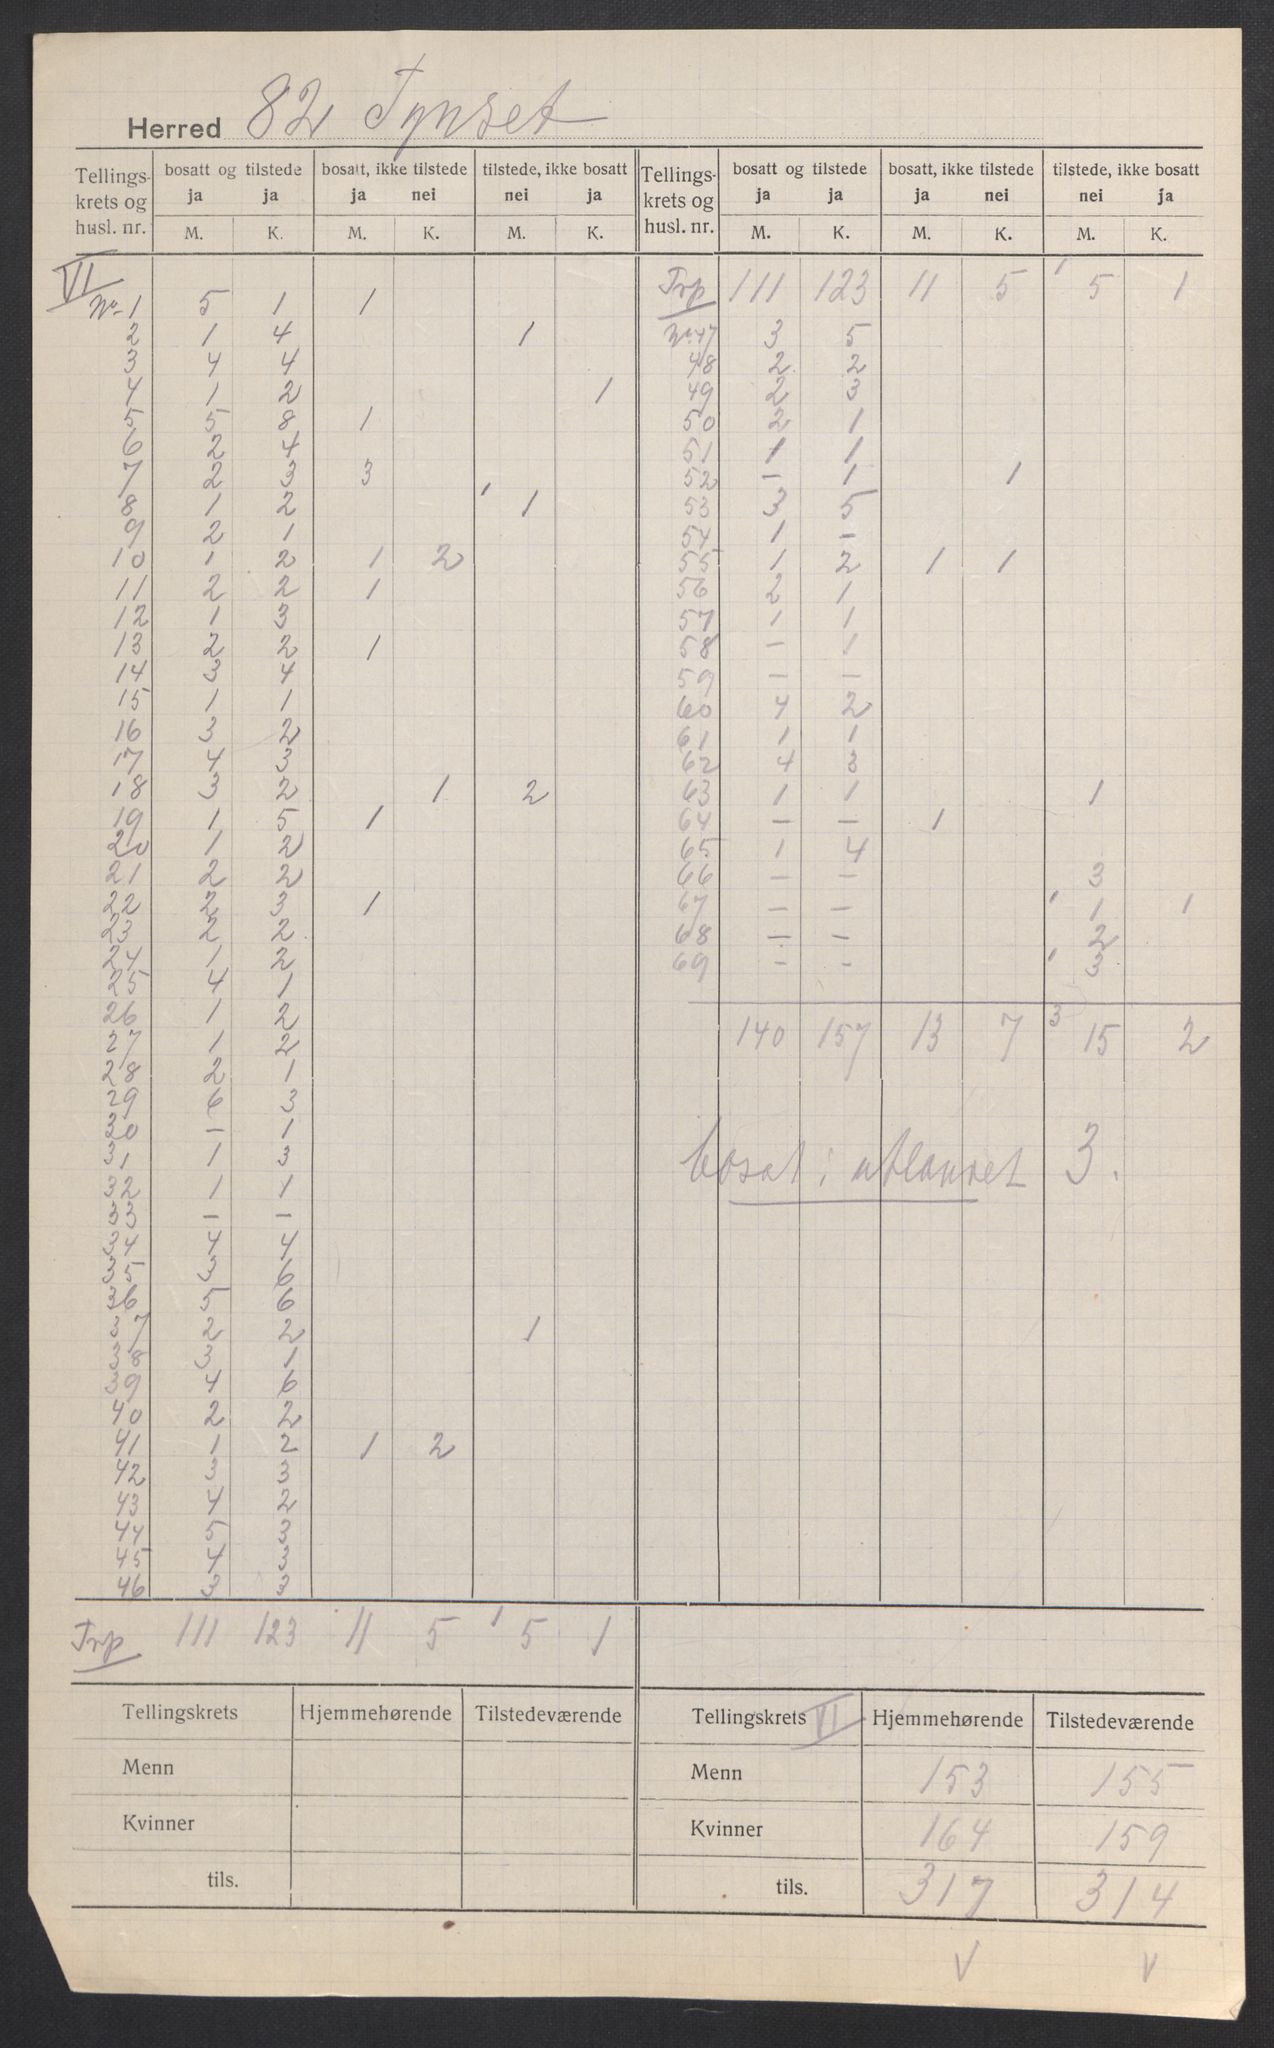 Herred 82 Tynset
Tellings-krets og husl. nr. | bosatt og tilstede ja ja | bosatt, ikke tilstede ja nei | tilstede, ikke bosatt nei ja | Tellings-krets og husl. nr. | bosatt og tilstede ja ja | bosatt, ikke tilstede ja nei | tilstede, ikke bosatt nei ja
M. K. M. K. M. K. M. K. M. K. M. K.
VI
Nr. 1 5 1 1
2 1 4 1
3 4 4
4 1 2 1
5 5 8 1
6 2 4
7 2 3 3
8 1 2 ' 1
9 2 1
10 1 2 1 2
11 2 2 1
12 1 3
13 2 2 1
14 3 4
15 1 1
16 3 2
17 4 3
18 3 2 1 2
19 1 5 1
20 1 2
21 2 2
22 2 3 1
23 2 2
24 1 2
25 4 1
26 1 2
27 1 2
28 2 1
29 6 3
30 – 1
31 1 3
32 1 1
33 – –
34 4 4
35 3 6
36 5 6
37 2 2 1
38 3 1
39 4 6
40 2 2
41 1 2 1 2
42 3 3
43 4 2
44 5 3
45 4 3
46 3 3
Trp 111 123 11 5 1 5 1
Trp 111 123 11 5 1 5 1
Nr. 47 3 5
48 2 2
49 2 3
50 2 1
51 1 1
52 – 1 1
53 3 5
54 1 –
55 1 2 1 1
56 2 1
57 1 1
58 – 1
59 – –
60 4 2
61 1 1
62 4 3
63 1 1 1
64 – – 1
65 1 4
66 – – 3
67 – – ' 1 1
68 – – 2
69 – – ' 3
140 157 13 7 3 15 2
bosat i utlandet 3.
Tellingskrets Hjemmehørende Tilstedeværende
Menn
Kvinner
tils.
Tellingskrets VI Hjemmehørende Tilstedeværende
Menn 153 155
Kvinner 164 159
tils. 317 314
V V